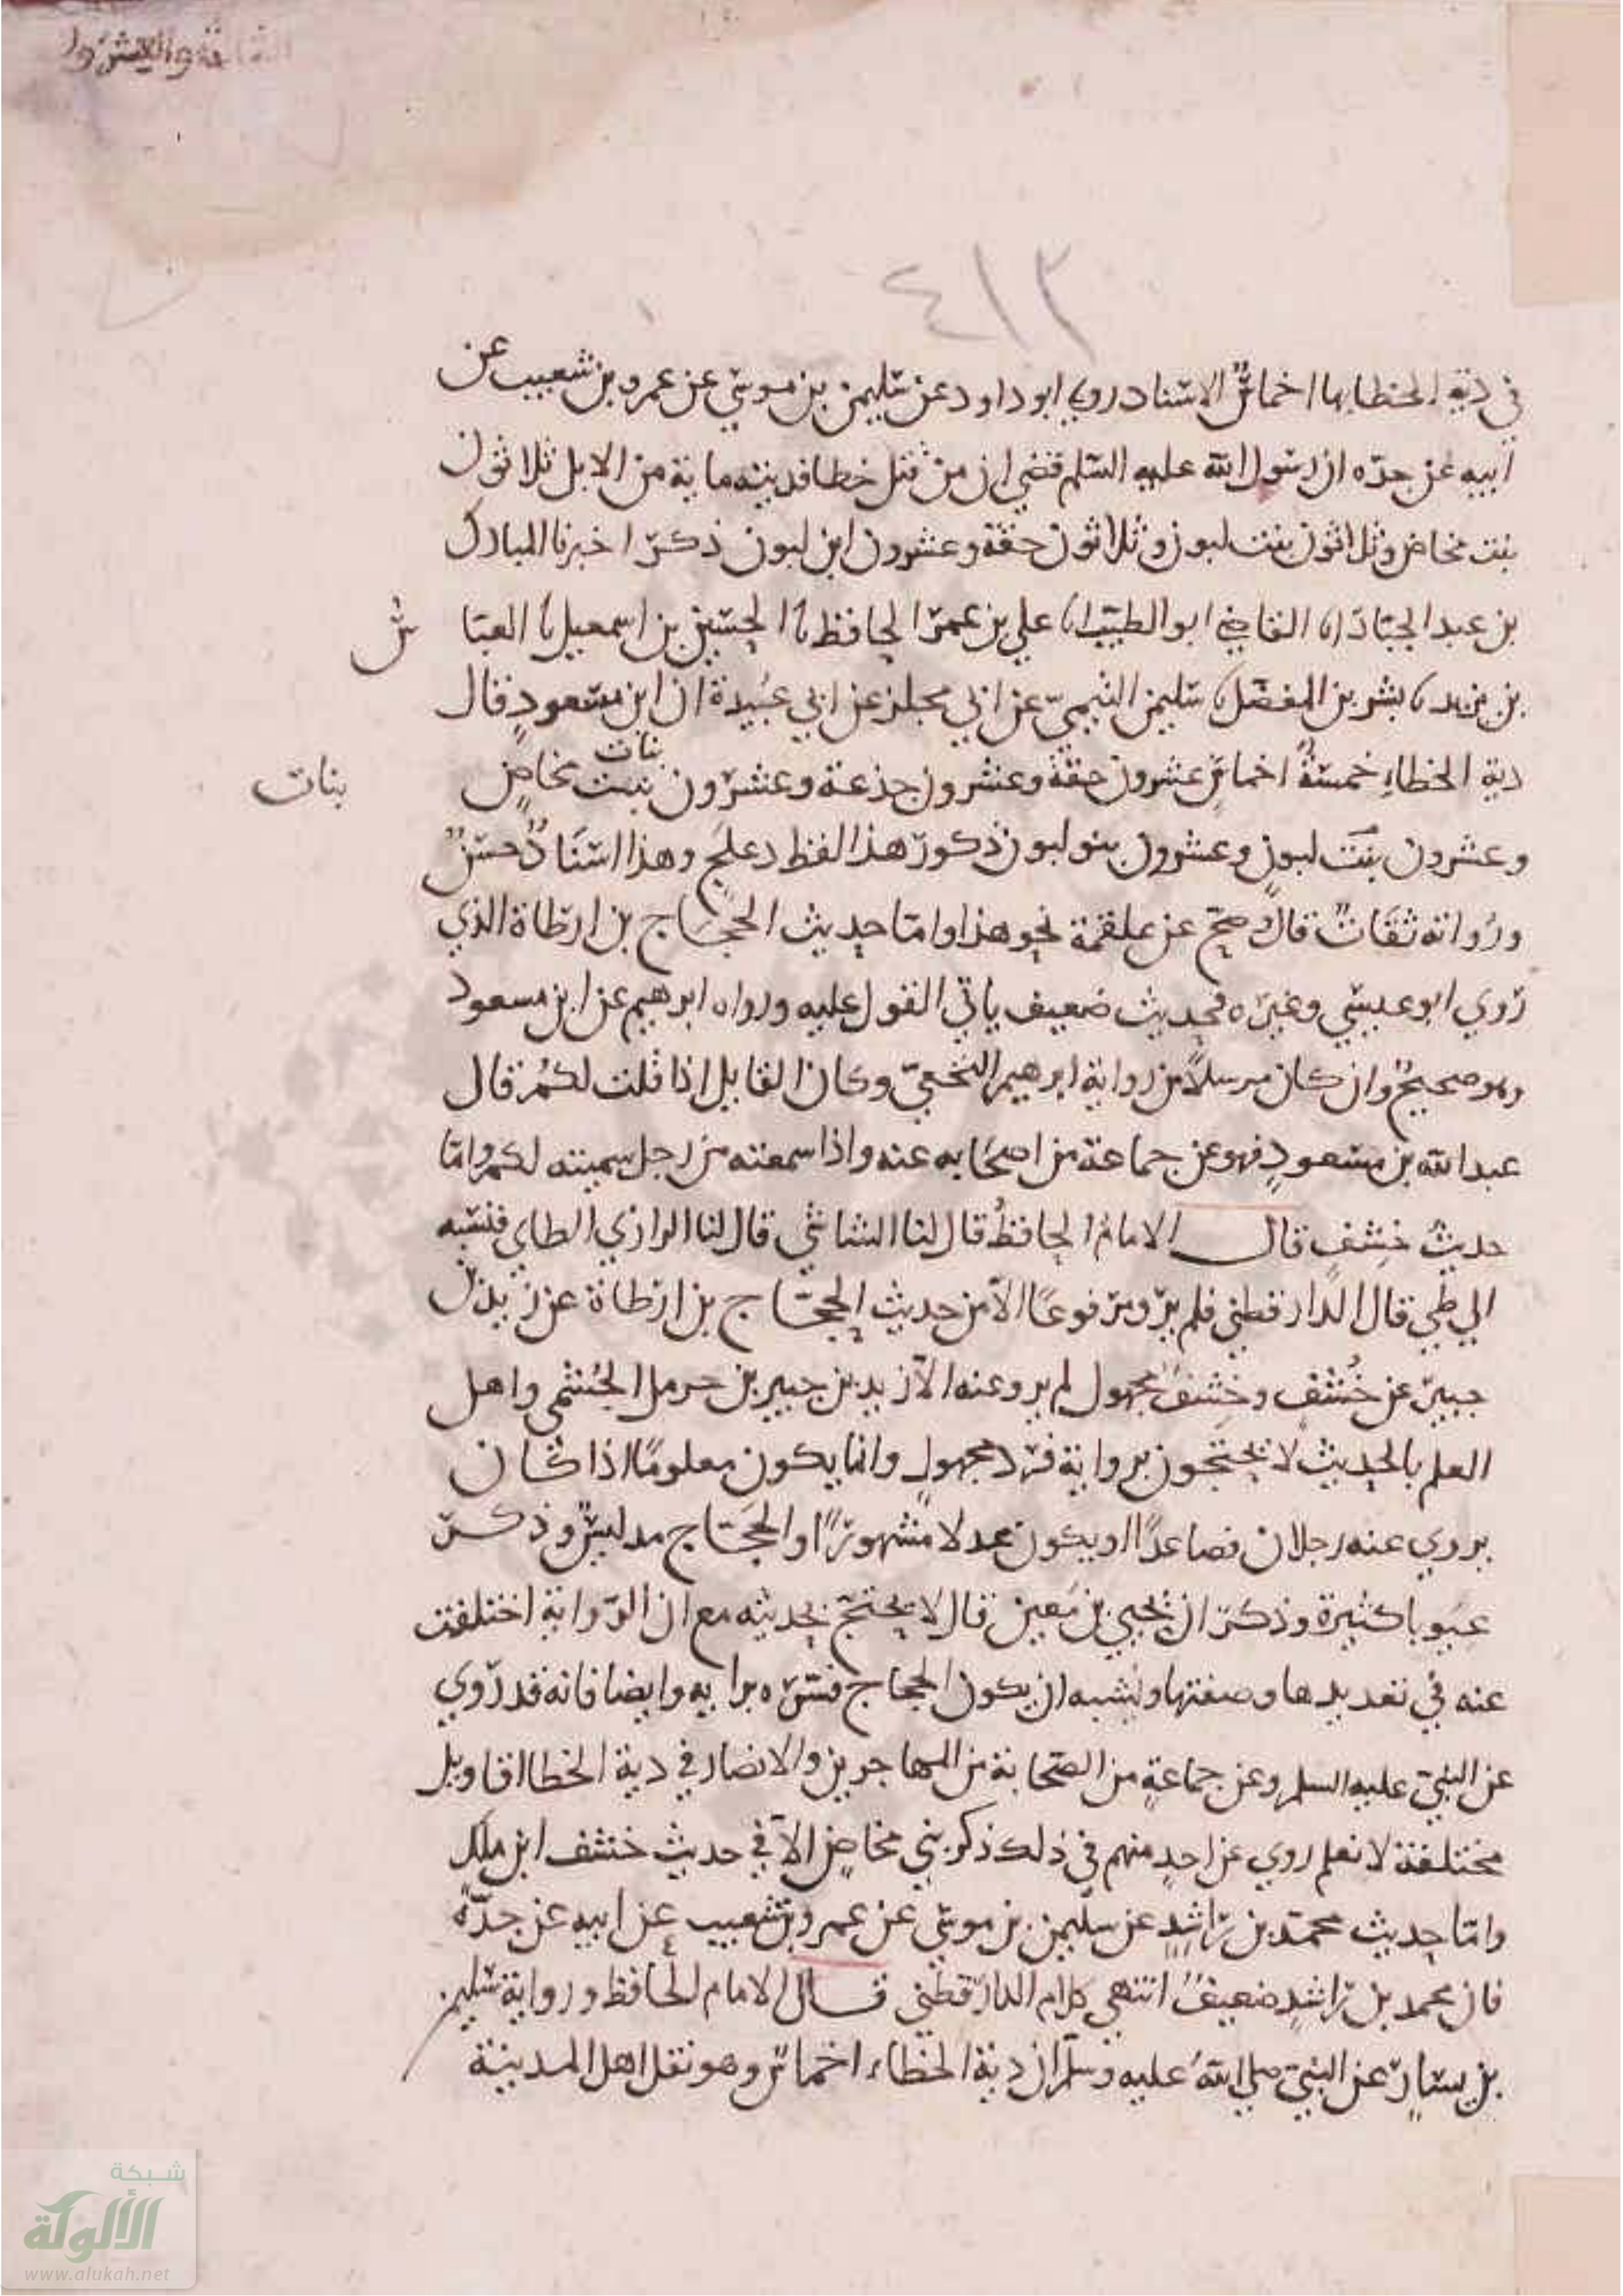 ٤١٢
في دية الخطا بها اخماسٌ الاسناد روي ابو داود عن سليمن بن موسي عن عمرو بن شعيب عن
ابيه عن جدّه ان رسول الله عليه السلم قضي ان من قتل خطا فديته ماية من الابل ثلاثون
بنت مخاض وثلاثون بنت لبون وثلاثون حقة وعشرون ابن لبون ذكر اخبرنا المبارك
بن عبد الجبّار انا القاضي ابو الطيّب انا علي بن عمر الحافظ نا الحسين بن اسمعيل نا العبّا س
بن يزيد نا بشر بن المفضل نا سليمن التيميّ عن ابي مجلز عن ابي عبيدة ان ابن مسعودٍ قال
دية الخطاءِ خمسةُ اخماسٍ عشرون حقة وعشرون جذعة وعشرون بنت بنات مخاضٍ بنات
وعشرون بنت لبونٍ وعشرون بنو لبون ذكور هذا لفظ دعلج وهذا اسنادٌ حسنٌ
ورُواته ثقاتٌ قال صح عن علقمة نحو هذا وامّا حديث الحجّاج بن ارطاة الذي
روي ابو عيسي وغيره فحديث ضعيف ياتي القول عليه ورواه ابرهيم عن ابن مسعود
وهو صحيحٌ وان كان مرسلاً من رواية ابرهيم النخعيّ وكان القايل اذا قلت لكم قال
عبد الله بن مسعودٍ فهو عن جماعة من اصحابه عنه واذا سمعته من رجل سميته لكم وامّا
حديثُ خِشفٍ قال الامام الحافظُ قال لنا الشاشي قال لنا الرازي الطاي فنسبه
الي طي قال الدارقطني فلم يرو مرفوعًا الاّ من حديث الحجّاج بن ارطاة عن زيد بن
جبير عن خُشف وخِشفٌ مجهول لم يرو عنه الاّ زيد بن جبير بن حرمل الجُشمي واهل
العلم بالحديث لا يحتجون برواية فرد مجهولٍ وانما يكون معلومًا اذا كان
يروي عنه رجلان فصاعدًا او يكون عدلا مشهورًا والحجّاج مدلسٌ وذكر
عيوبا كثيرة وذكر ان يحيي بن معين قال لا يحتج بحديثه مع ان الرّواية اختلفت
عنه في تعديدها وصفتها ويشبه ان يكون الحجاج فسّره برايه وايضا فانه قد رُوي
عن النبيّ عليه السلم وعن جماعةٍ من الصّحابة من المهاجرين والانصار في دية الخطا اقاويل
مختلفة لا نعلم روي عن احدٍ منهم في ذلك ذكر بني مخاضٍ الاّ في حديث خشف ابن ملك
وامّا حديث محمّد بن راشدٍ عن سليمن بن موسي عن عمرو بن شعيب عن ابيه عن جدّه
فان محمد بن راشدٍ ضعيفٌ انتهي كلام الدارقطني قال الامام الحافظ ورواية سليمن
بن يسار عن النبيّ صلي الله عليه وسلّم ان دية الخطاء اخماس وهو نقل اهل المدينة
شبكة
الألوكة
www.alukah.net